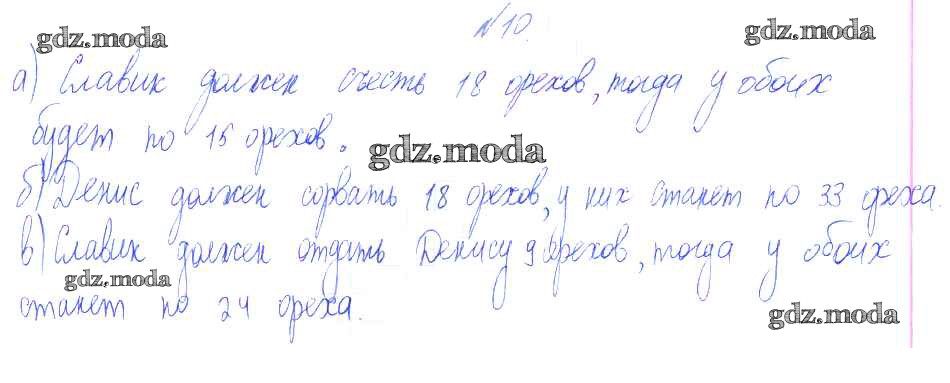 №10.
gdz.moda gdz.moda
а) Славик должен съесть 18 орехов, тогда у обоих
будет по 15 орехов.
gdz.moda
б) Денис должен сорвать 18 орехов, у них станет по 33 ореха.
в) Славик должен отдать Денису 9 орехов, тогда у обоих
gdz.moda
станет по 24 ореха.
gdz.moda